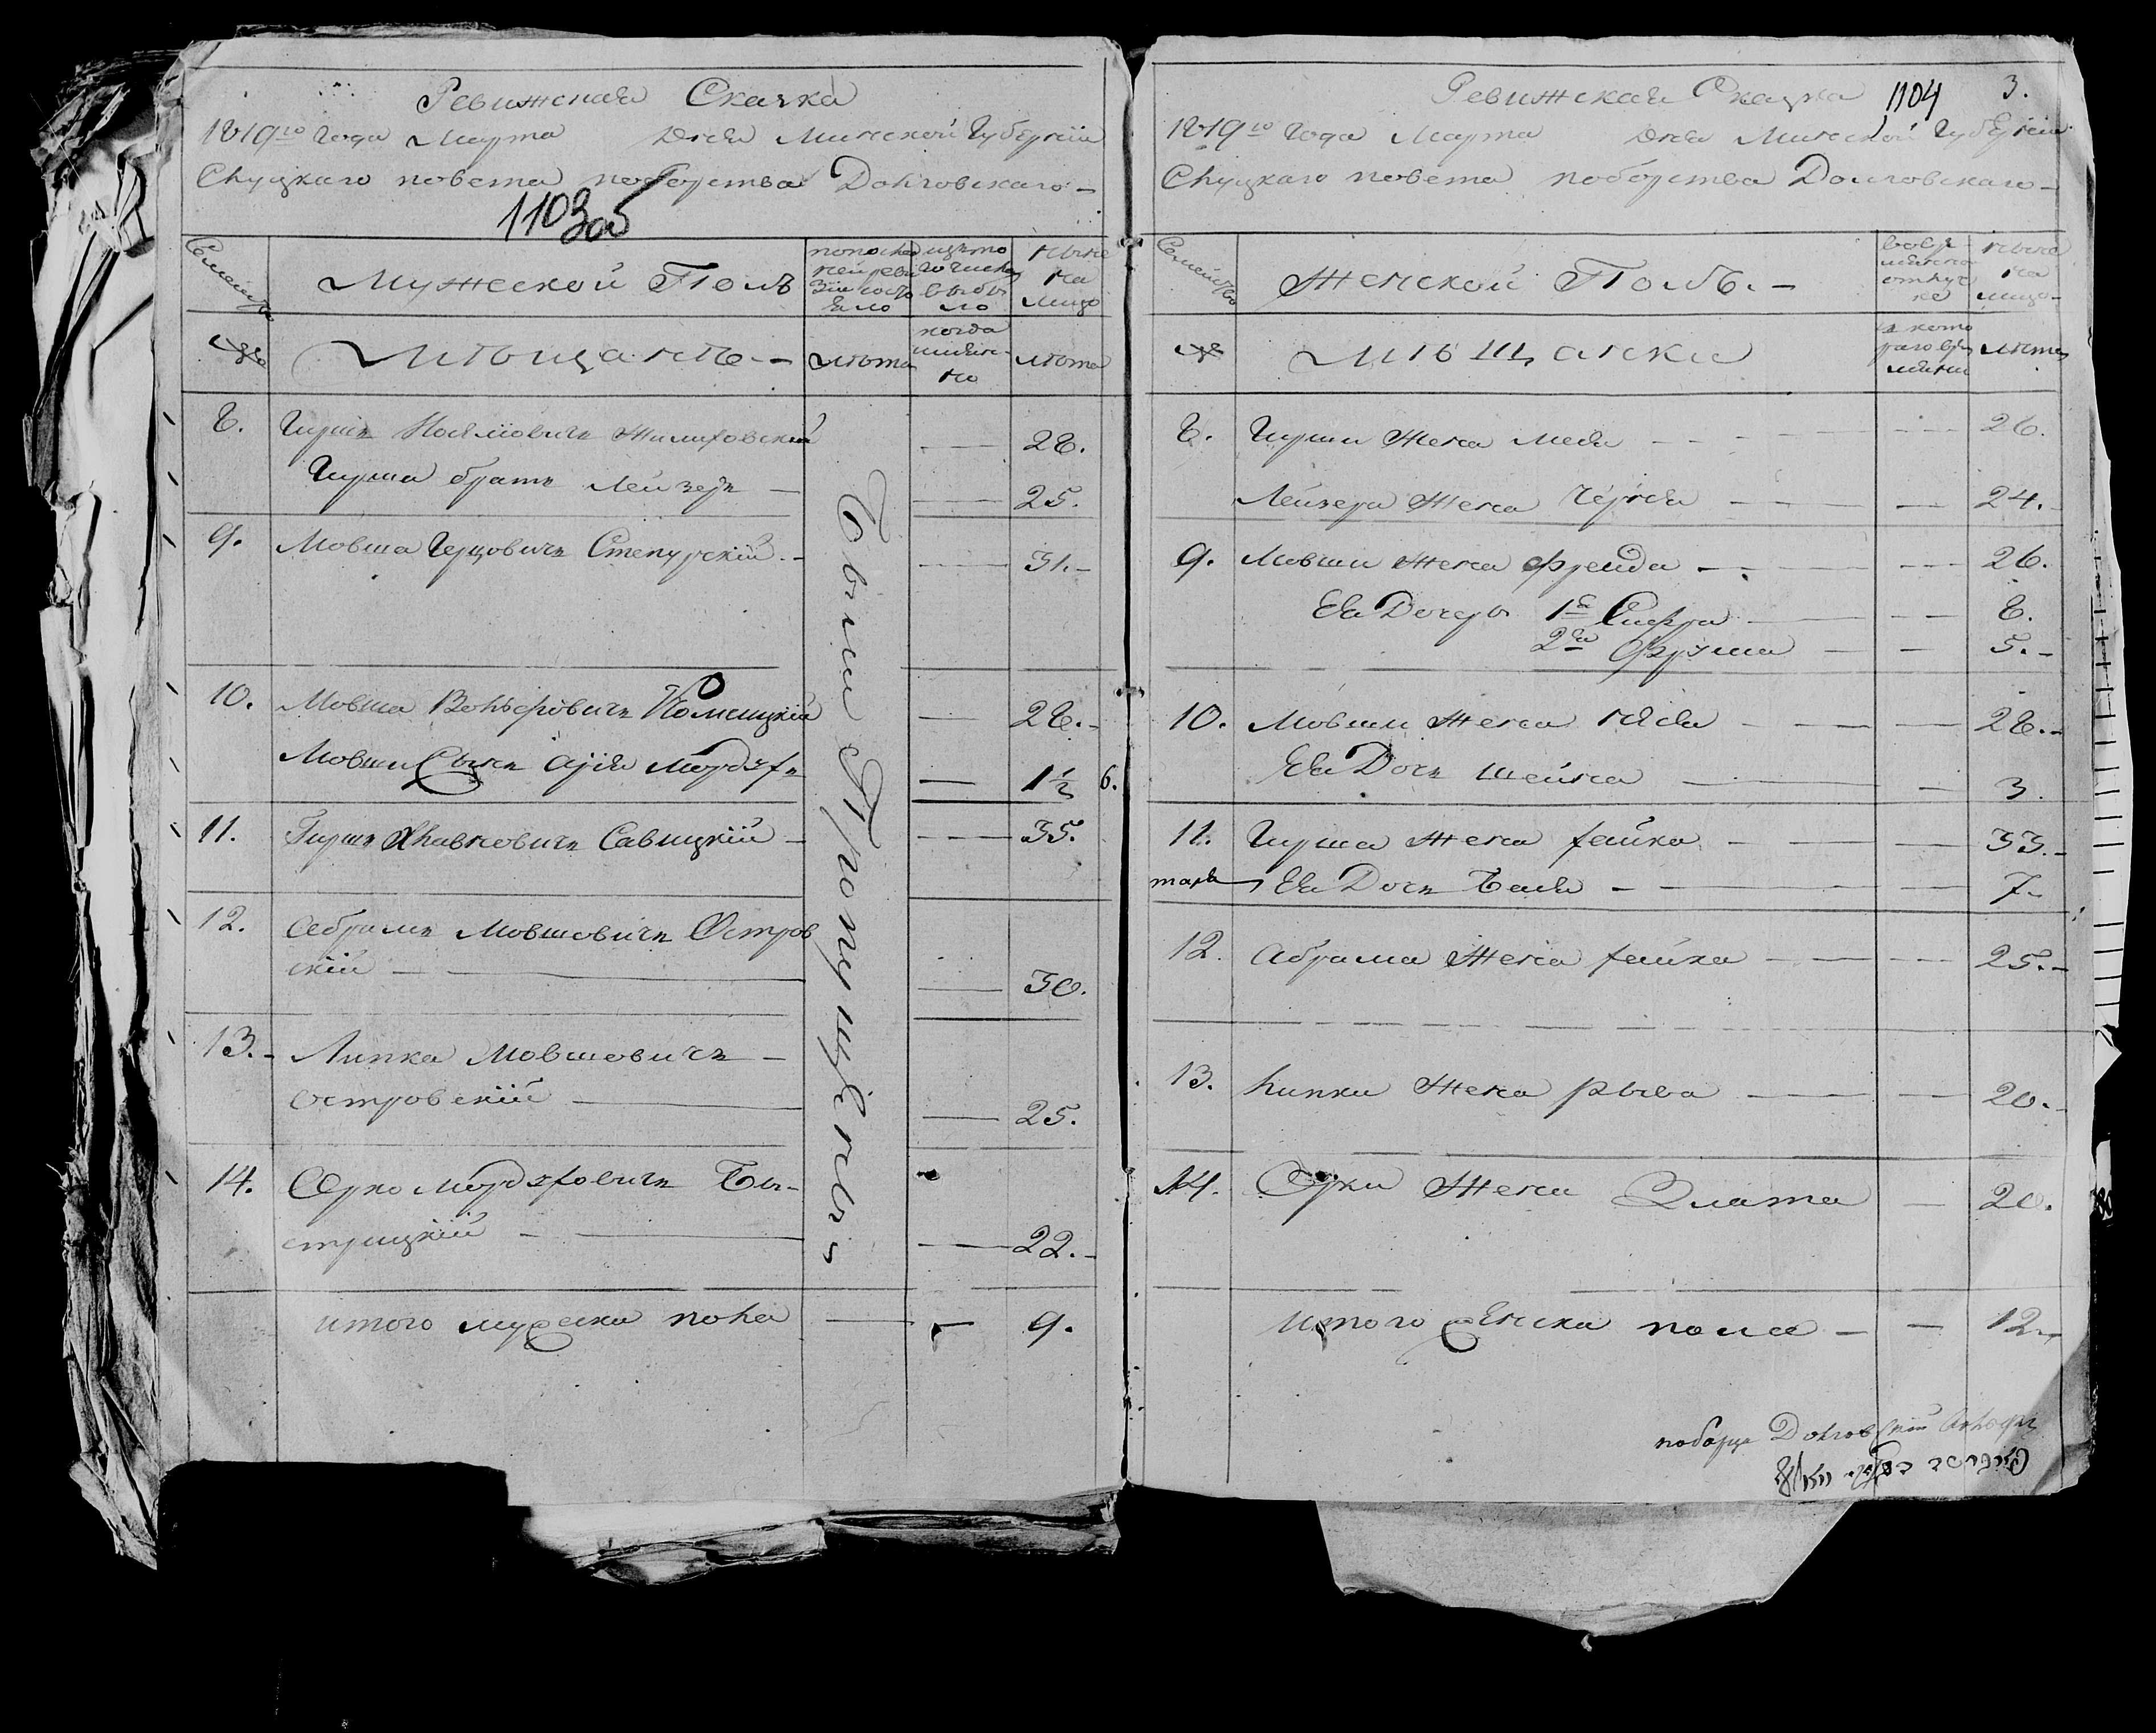 Ревижская Скаска
1819го года Марта Дня Минской Губернiи
Слуцкаго повета поборства Долговскаго -
1103об
Семейство
Мужеской Полъ
по послед
ней реви
зiи состо
яло
изъ то
го числа
выбы
ло
ныне
на
лицо
Мѣщанъ -
лѣта
когда
имянн-
но
лѣта
8. Гиршъ Носямовичъ Жилиховскiй — 28.
Гирша братъ Лейзеръ — — 25.
9. Мовша Герцовичъ Степурскiй - — 31. -
10. Мовша Вольфовичъ Комицкiй — 28. -
Мовши Сынъ Арiя Мордухъ — 1½ 6.
11. Гиршъ Славновичъ Савицкiй — — 35.
12. Абрамъ Мовшовичъ Остров
скiй — — 30.
13. - Липка Мовшовичъ —
островскiй — — 25.
14. Орко Мордуховичъ Бы-
стрицкiй — — 22. -
итого мужеска пола — — 9.
Были Пропущены
Ревижская Скаска 1104 3.
1819го года Марта Дня Минской Губернiи
Слуцкаго повета поборства Долговскаго -
Семейство
Женской Полъ. -
вовре-
менно
отлуч
ке
ныне
на
лицо -
Мѣщанки
с кото
раго вре
мени
лѣта
8. Гирши Жена Мея — — 26.
Лейзера Жена Черня — — 24. -
9. Мовши Жена Фрейда — — 26.
Ея Дочерь 1я Сифра — — 8.
2я Фрума — — 5. -
10. Мовши Жена Няся — — 28. -
Ея Дочь Шейна — — 3.
11. Гирша Жена Хайка — — 33. -
Ея Дочь Бася — — 7 -
12. Абрама Жена Хайка — — 25. -
13. Липки Жена Рыва — — 20. -
14. Орки Жена Злата — 20.
итого женска пола — — 12 -
поборца Долговскiй